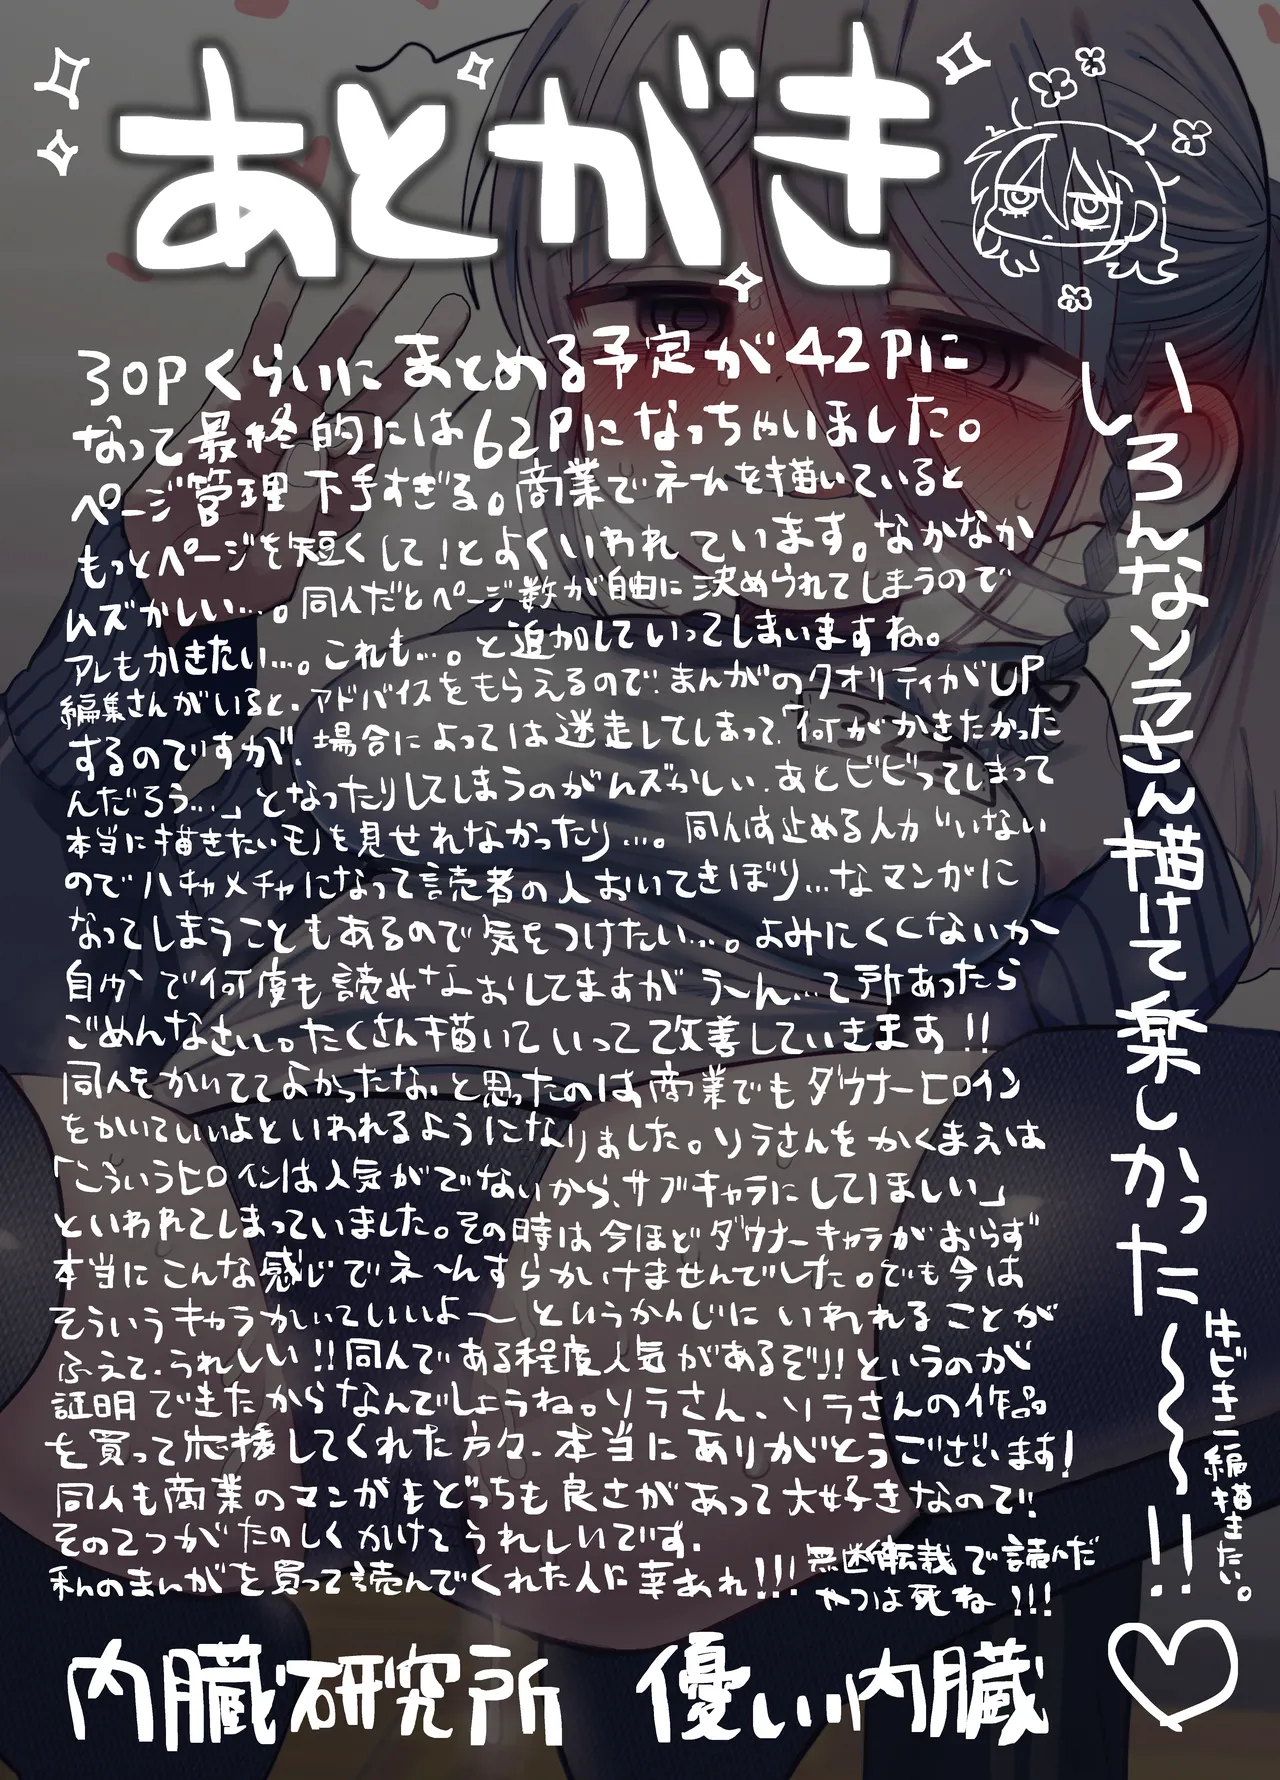 あとがき
30Pくらいにまとめる予定が42Pに
なって最終的には62Pになっちゃいました。
ページ管理下手すぎる。商業でネームを描いていると
もっとページを短くして!とよくいわれています。なかなか
ムズかしい…。同人だとページ数が自由に決められてしまうので
アレもかきたい…。これも…。と追加していってしまいますね。
編集さんがいると、アドバイスをもらえるので、まんがのクオリティがUP
するのですが、場合によっては迷走してしまって、「何がかきたかった
んだろう…」となったりしてしまうのがムズかしい、あとビビってしまって
本当に描きたいモノを見せれなかったり…。同人は止める人がいない
のでハチャメチャになって読者の人おいてきぼり…なマンガに
なってしまうこともあるので気をつけたい…。よみにくくないか
自分で何度も読みなおしてますがう〜ん…て所あったら
ごめんなさい。たくさん描いていって改善していきます!!
同人をかいててよかったな、と思ったのは商業でもダウナーヒロイン
をかいていいよといわれるようになりました。ソラさんをかくまえは
「こういうヒロインは人気がでないから、サブキャラにしてほしい」
といわれてしまっていました。その時は今ほどダウナーキャラがおらず
本当にこんな感じでネームすらかけませんでした。でも今は
そういうキャラかいていいよ〜というかんじにいわれることが
ふえて、うれしい!!同人である程度人気があるぞ!!というのが
証明できたからなんでしょうね。ソラさん、ソラさんの作品
を買って応援してくれた方々、本当にありがとうございます!
同人も商業のマンガもどっちも良さがあって大好きなので!!
その2つがたのしくかけてうれしいです。
私のまんがを買って読んでくれた人に幸あれ!!!
無断転載で読んだ
やつは死ね!!!
いろんなソラさん描けて楽しかった〜!!
牛ビキニ編描きたい。
内臓研究所 優しい内臓